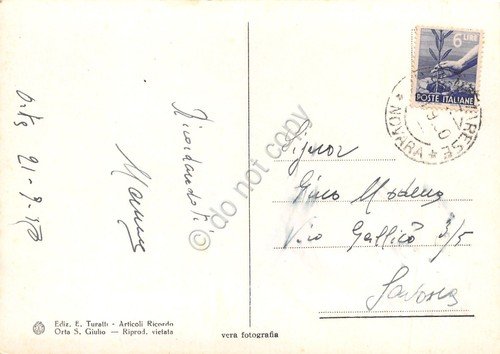 Orta 21-9-48
Ricordandoti
6 LIRE
POSTE ITALIANE
NOVARA
Signor
Gino Modena
Vico Gallico 3/5
Savona
Ediz. E. Turatti - Articoli Ricordo
Orta S. Giulio — Riprod. vietata
vera fotografia
© do not copy